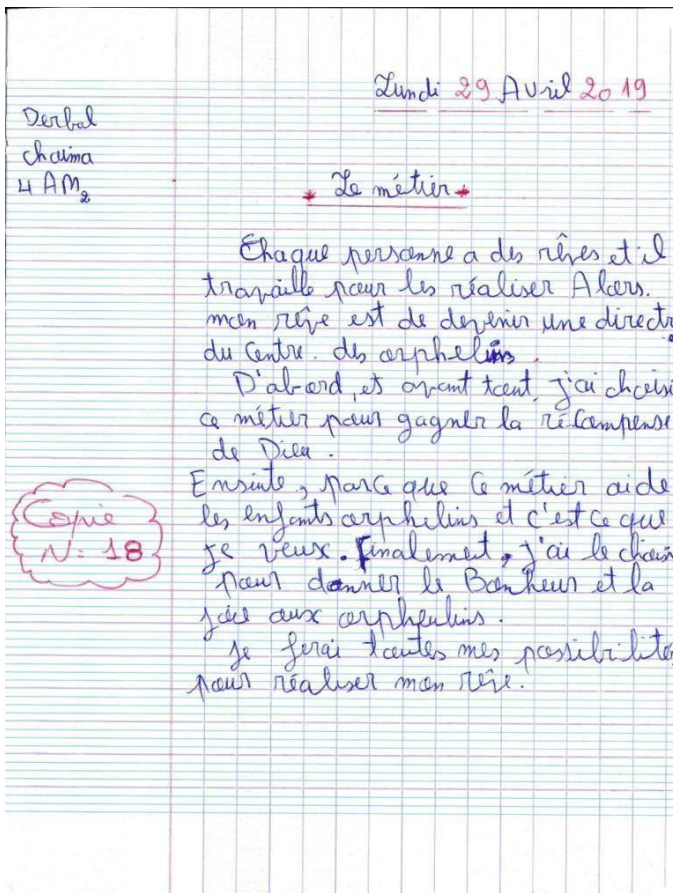 Lundi 29 Avril 2019
Derbal
chaima
4 AM2
* Le métier *
Chaque personne a des rêves et il
travaille pour les réaliser Alors.
mon rêve est de devenir une directr
du Centre. des orphelins.
D'abord, et avant tout, j'ai choisi
ce métier pour gagner la récompense
de Dieu.
Ensuite, parce que ce métier aide
les enfants orphelins et c'est ce que
je veux. Finalement, j'ai le chois
pour donner le Bonheur et la
joie aux orpheulins.
je ferai toutes mes possibilités
pour réaliser mon rêve.
Copie
N: 18